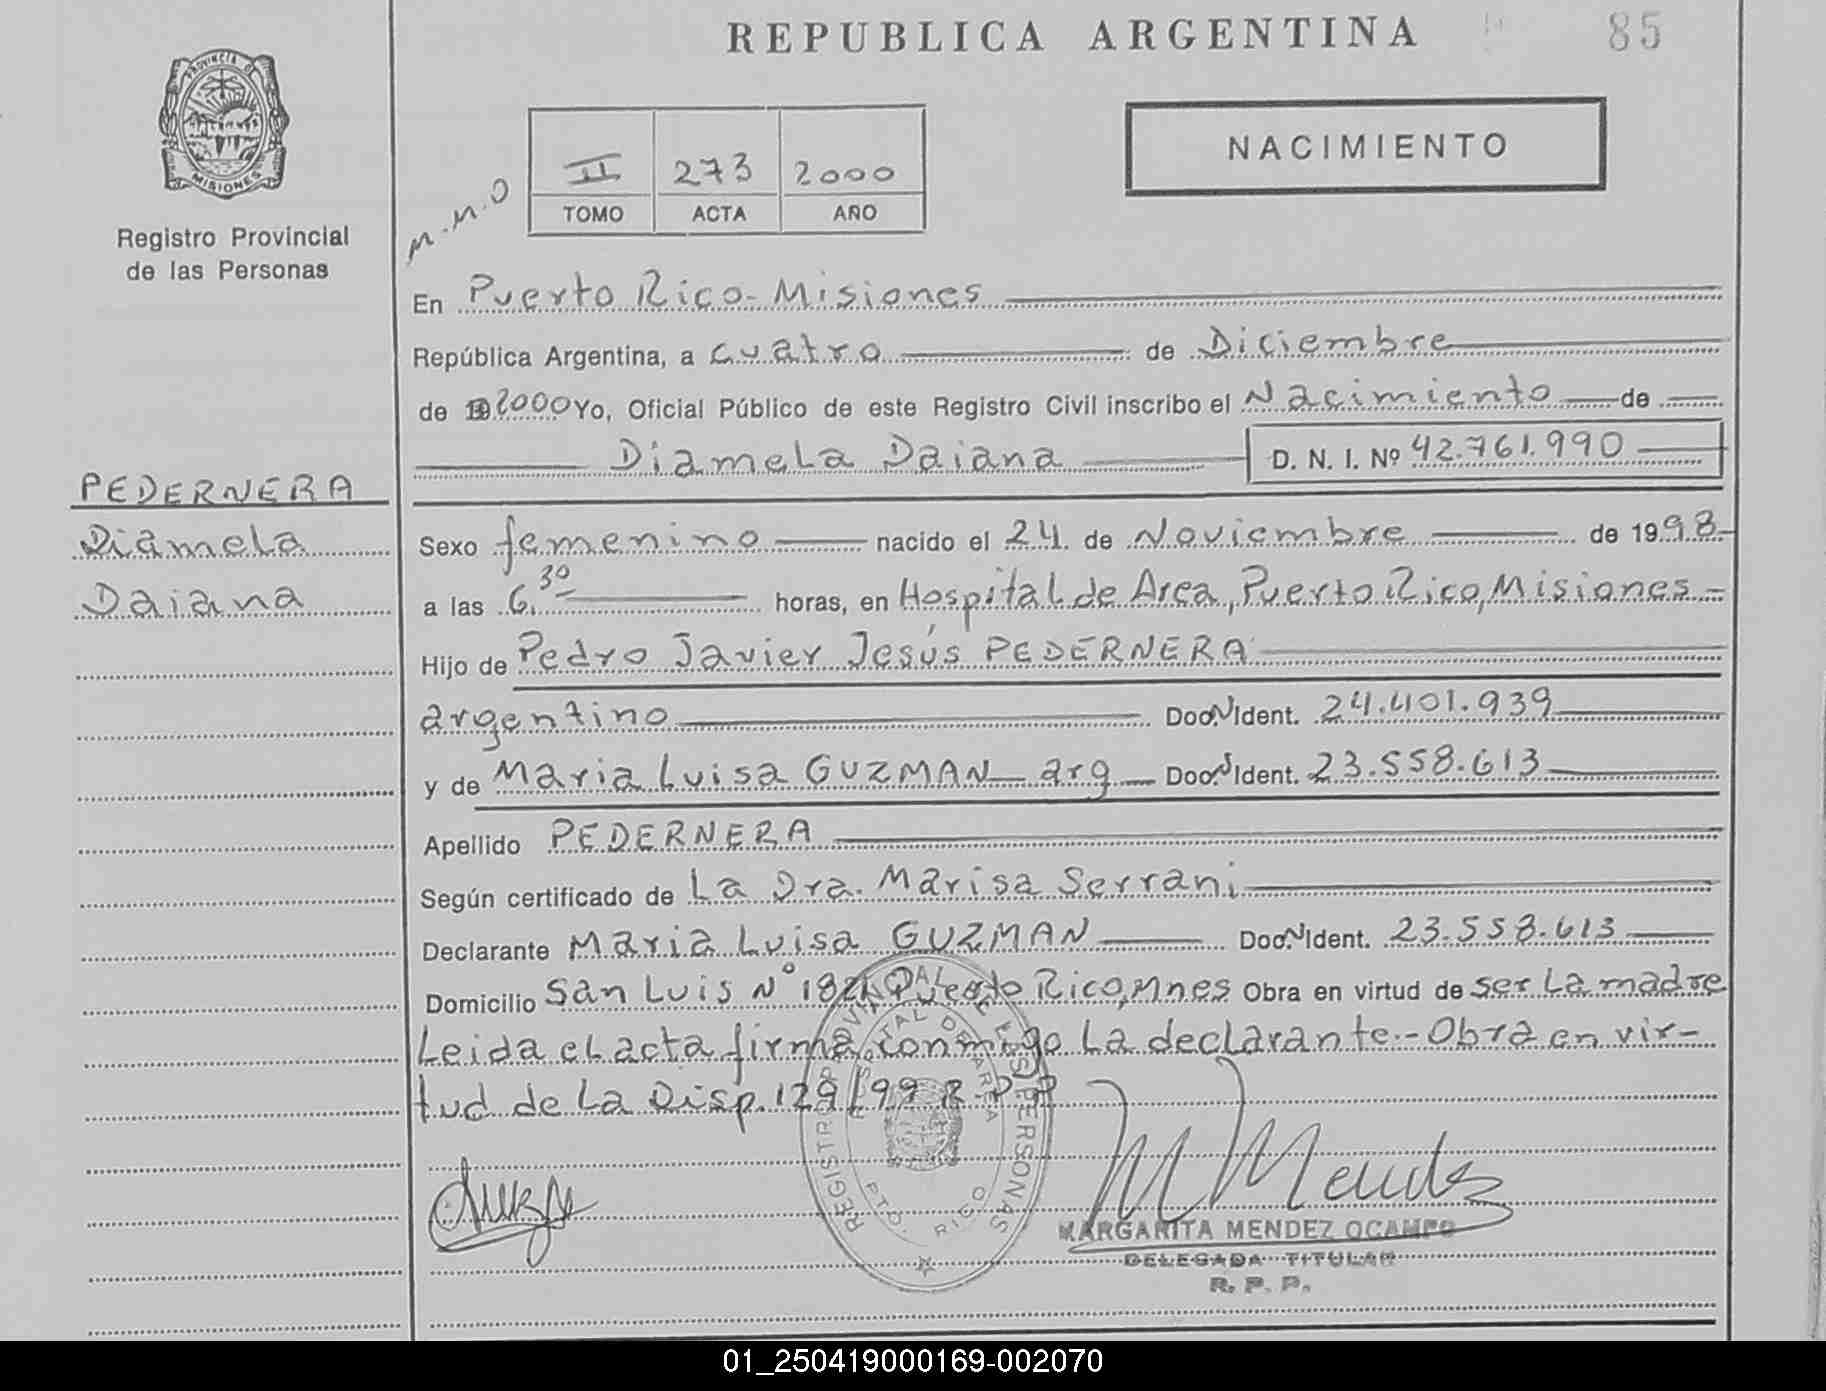 REPUBLICA ARGENTINA
85
PROVINCIA DE
MISIONES
Registro Provincial
de las Personas
M.M.O
II 273 2000
TOMO ACTA AÑO
NACIMIENTO
En Puerto Rico - Misiones
República Argentina, a cuatro de Diciembre
de 2000 Yo, Oficial Público de este Registro Civil inscribo el Nacimiento de
Diamela Daiana D. N. I. Nº 42.761.990
PEDERNERA
Diamela
Daiana
Sexo femenino nacido el 24 de Noviembre de 1998
a las 6.30 horas, en Hospital de Area, Puerto Rico, Misiones -
Hijo de Pedro Javier Jesús PEDERNERA
argentino Doc. N Ident. 24.401.939
y de Maria Luisa GUZMAN arg Doc. N Ident. 23.558.613
Apellido PEDERNERA
Según certificado de La Dra. Marisa Serrani
Declarante Maria Luisa GUZMAN Doc. N Ident. 23.558.613
Domicilio San Luis N° Puerto Rico, Mnes Obra en virtud de ser La madre
Leida el acta firma conmigo La declarante.- Obra en vir-
tud de La Disp. 129/99 R.P.P
REGISTRO PROVINCIAL DE LAS PERSONAS
HOSPITAL DE AREA
PTO. RICO
M Mendez
MARGARITA MENDEZ OCAMPO
DELEGADA TITULAR
R. P. P.
01_250419000169-002070